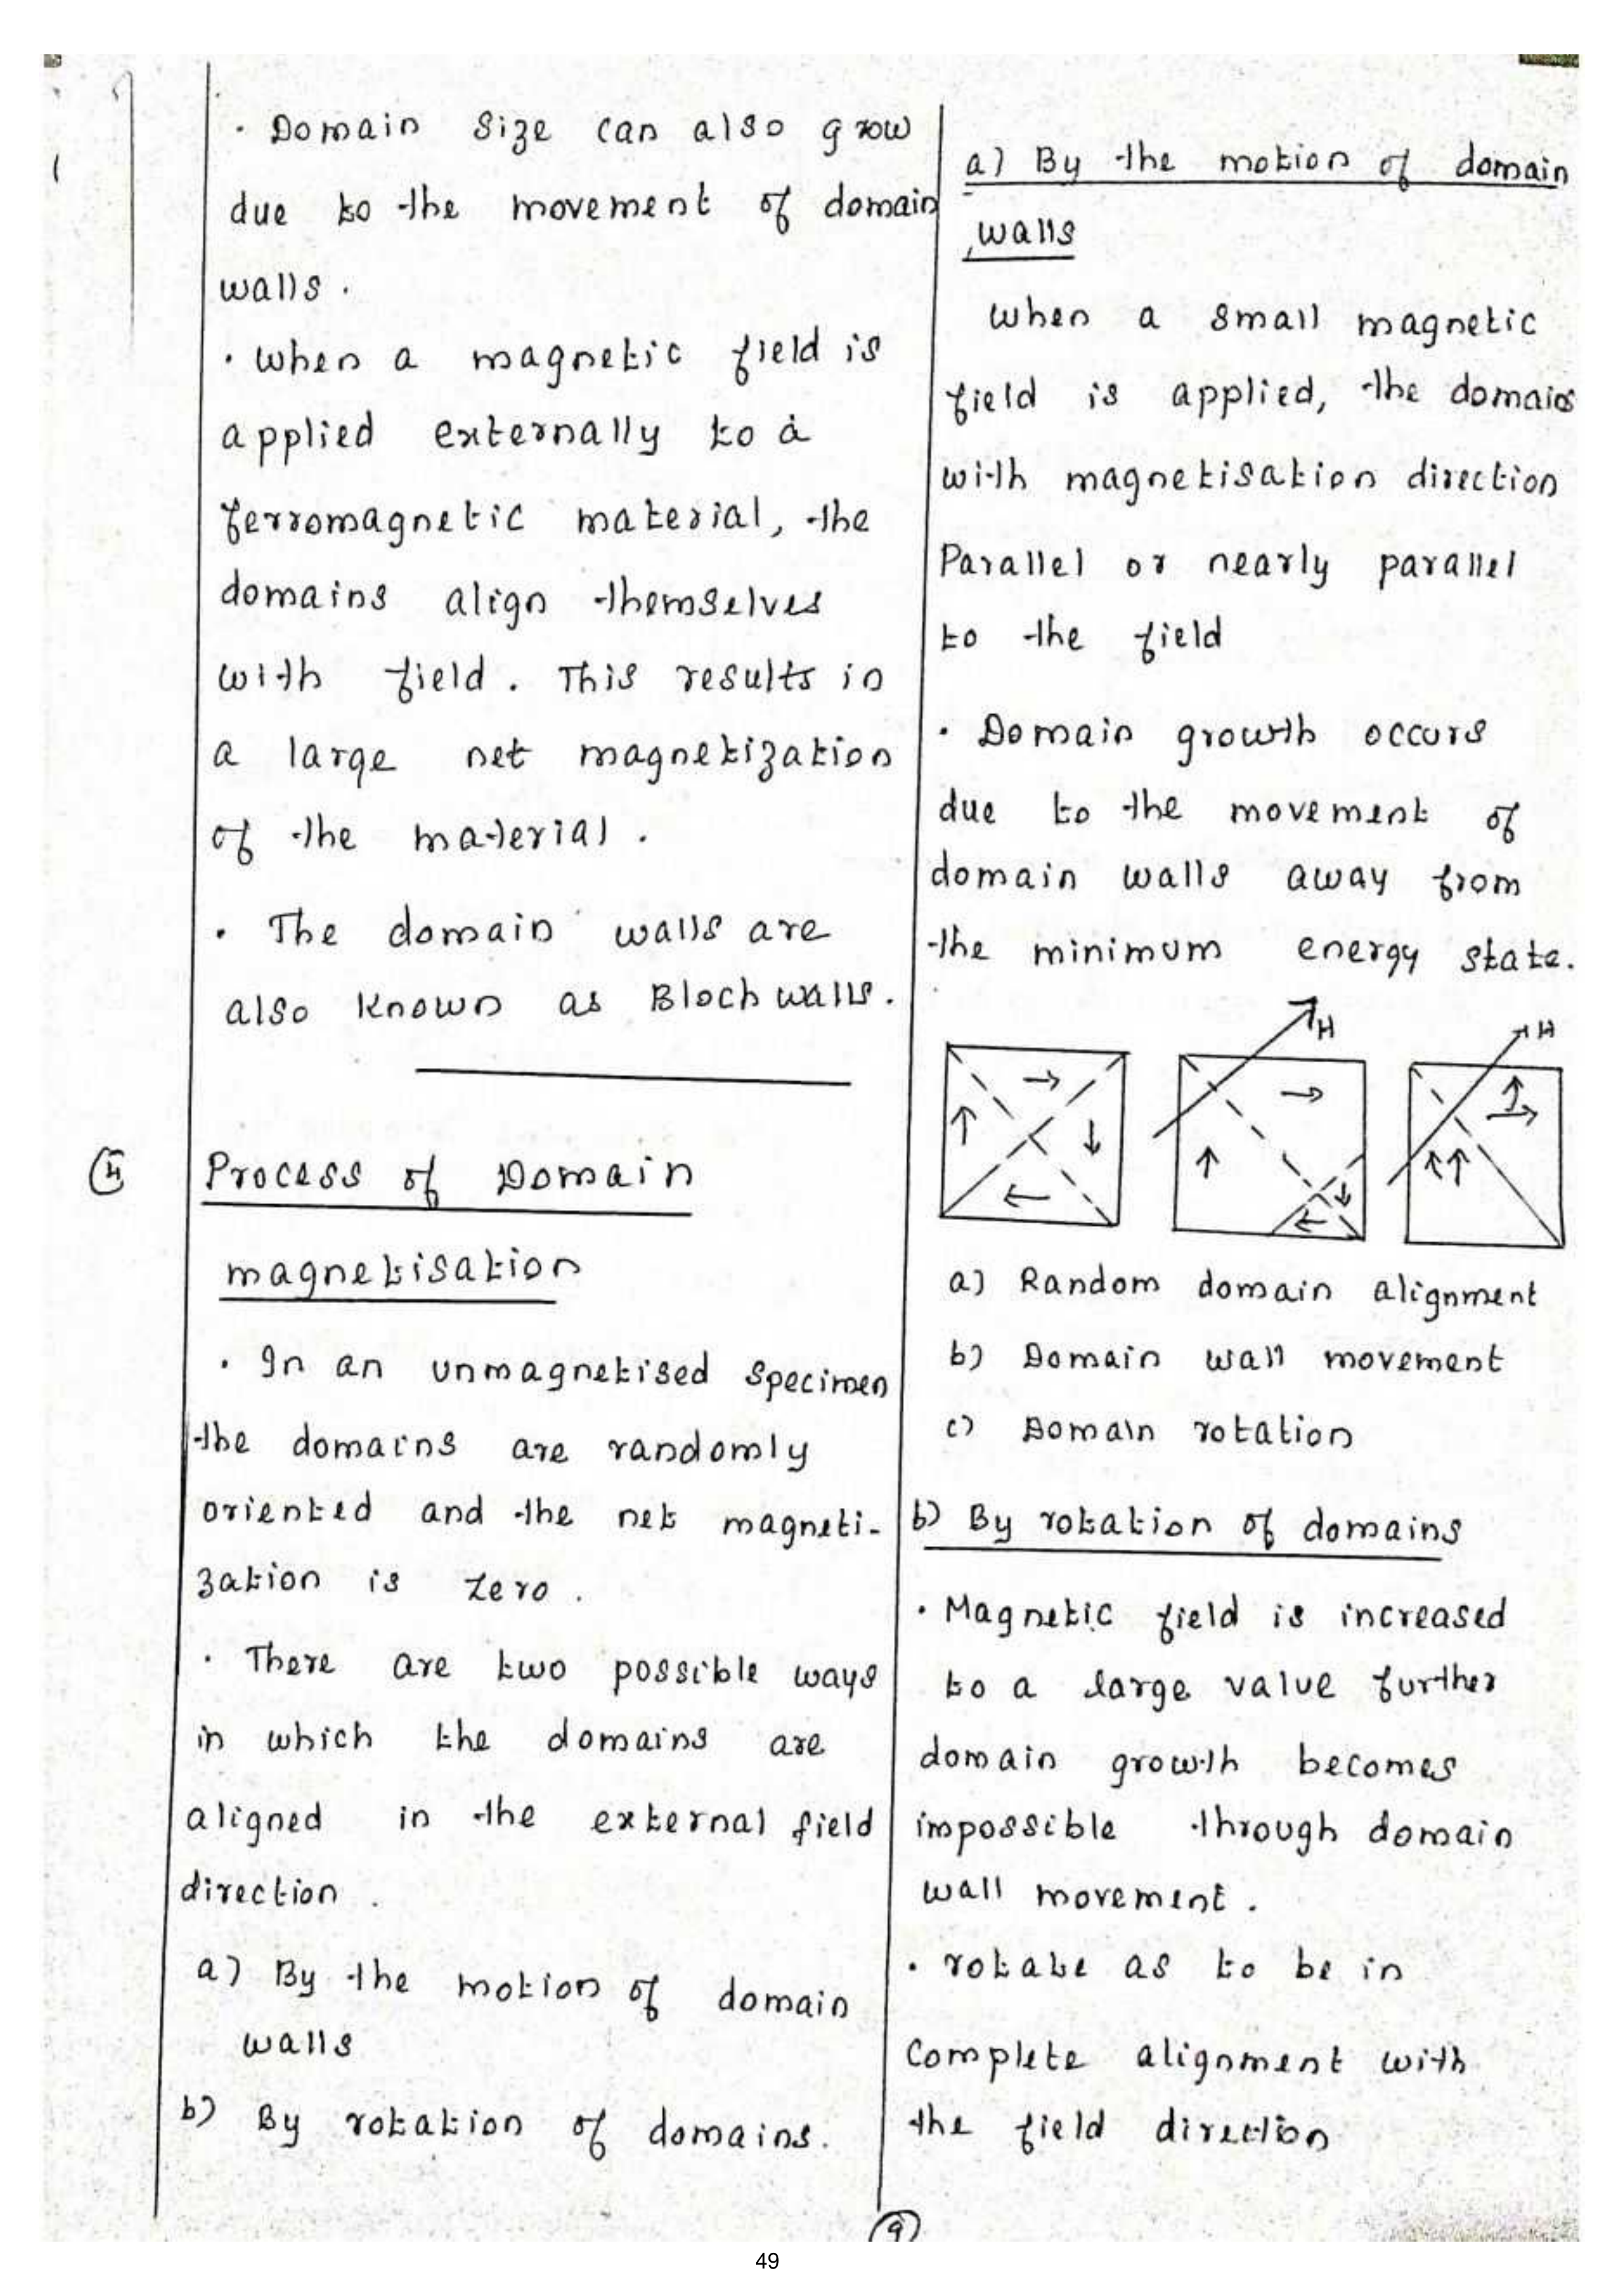 · Domain Size can also grow
due to the movement of domain
walls.
· when a magnetic field is
applied externally to a
ferromagnetic material, the
domains align themselves
with field. This results in
a large net magnetization
of the material.
· The domain walls are
also known as Bloch walls.
Process of Domain
magnetisation
· In an unmagnetised Specimen
the domains are randomly
oriented and the net magneti-
zation is zero.
· There are two possible ways
in which the domains are
aligned in the external field
direction.
a) By the motion of domain
walls
b) By rotation of domains.
a) By the motion of domain
walls
when a small magnetic
field is applied, the domains
with magnetisation direction
Parallel or nearly parallel
to the field
· Domain growth occurs
due to the movement of
domain walls away from
the minimum energy state.
H
H
a) Random domain alignment
b) Domain wall movement
c) Domain rotation
b) By rotation of domains
· Magnetic field is increased
to a large value further
domain growth becomes
impossible through domain
wall movement.
· rotate as to be in
Complete alignment with
the field direction
9
49